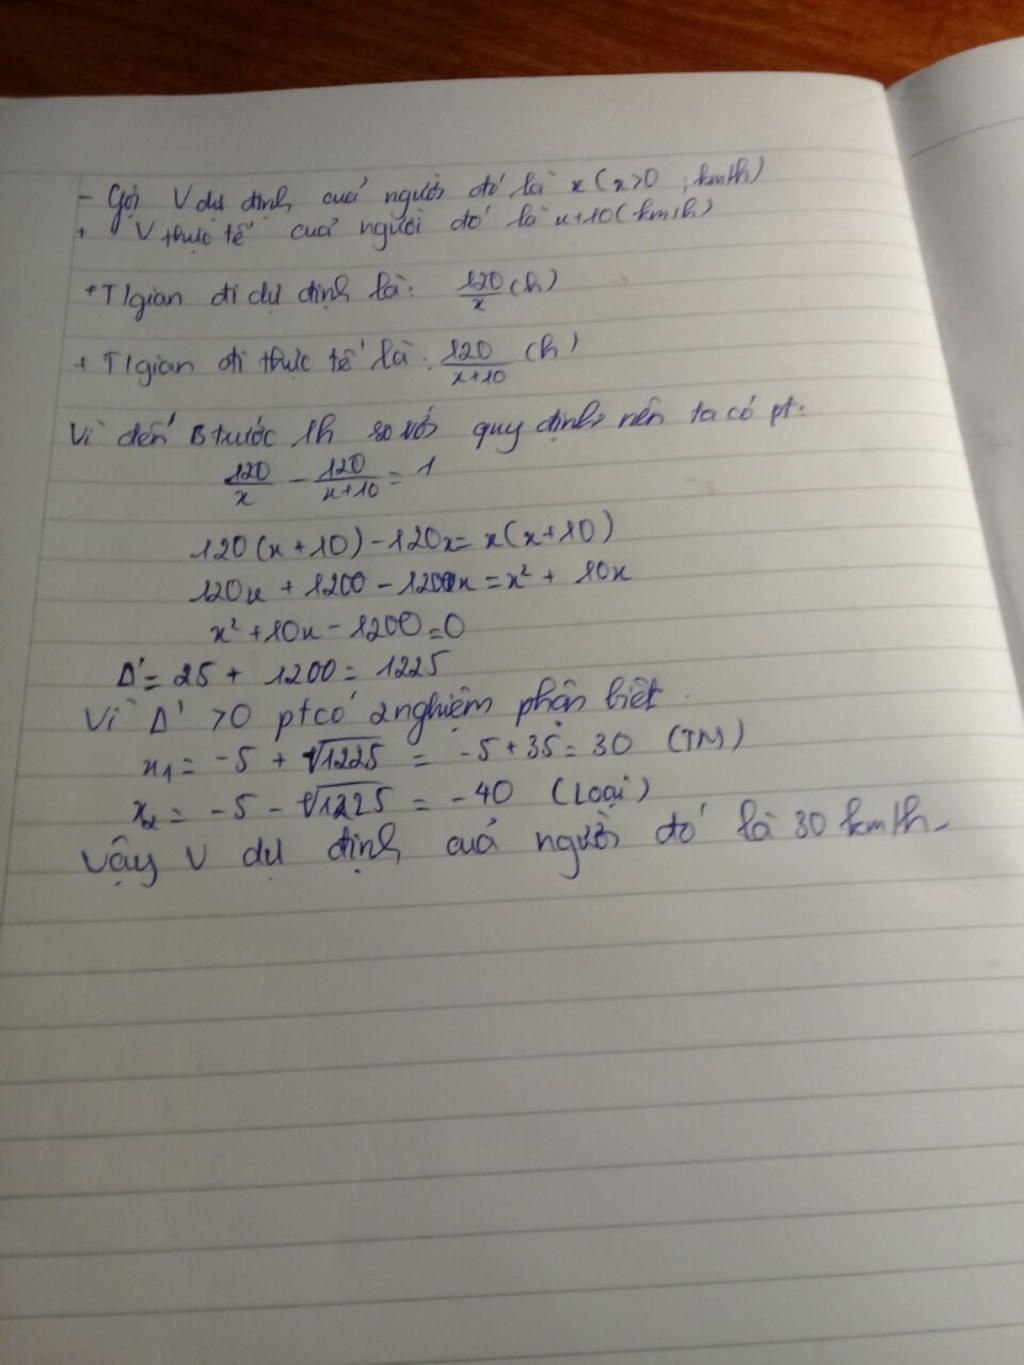 - Gọi V dự định của người đó là x (x>0 ; km/h)
+ V thực tế của người đó là x+10 (km/h)
+ T/gian đi dự định là: 120/x (h)
+ T/gian đi thực tế là: 120/(x+10) (h)
Vì đến B trước 1h so với quy định nên ta có pt:
120/x - 120/(x+10) = 1
120(x+10) - 120x = x(x+10)
120x + 1200 - 120x = x² + 10x
x² + 10x - 1200 = 0
Δ' = 25 + 1200 = 1225
Vì Δ' >0 pt có 2 nghiệm phân biệt.
x₁ = -5 + √1225 = -5 + 35 = 30 (TM)
x₂ = -5 - √1225 = -40 (Loại)
Vậy V dự định của người đó là 30 km/h.